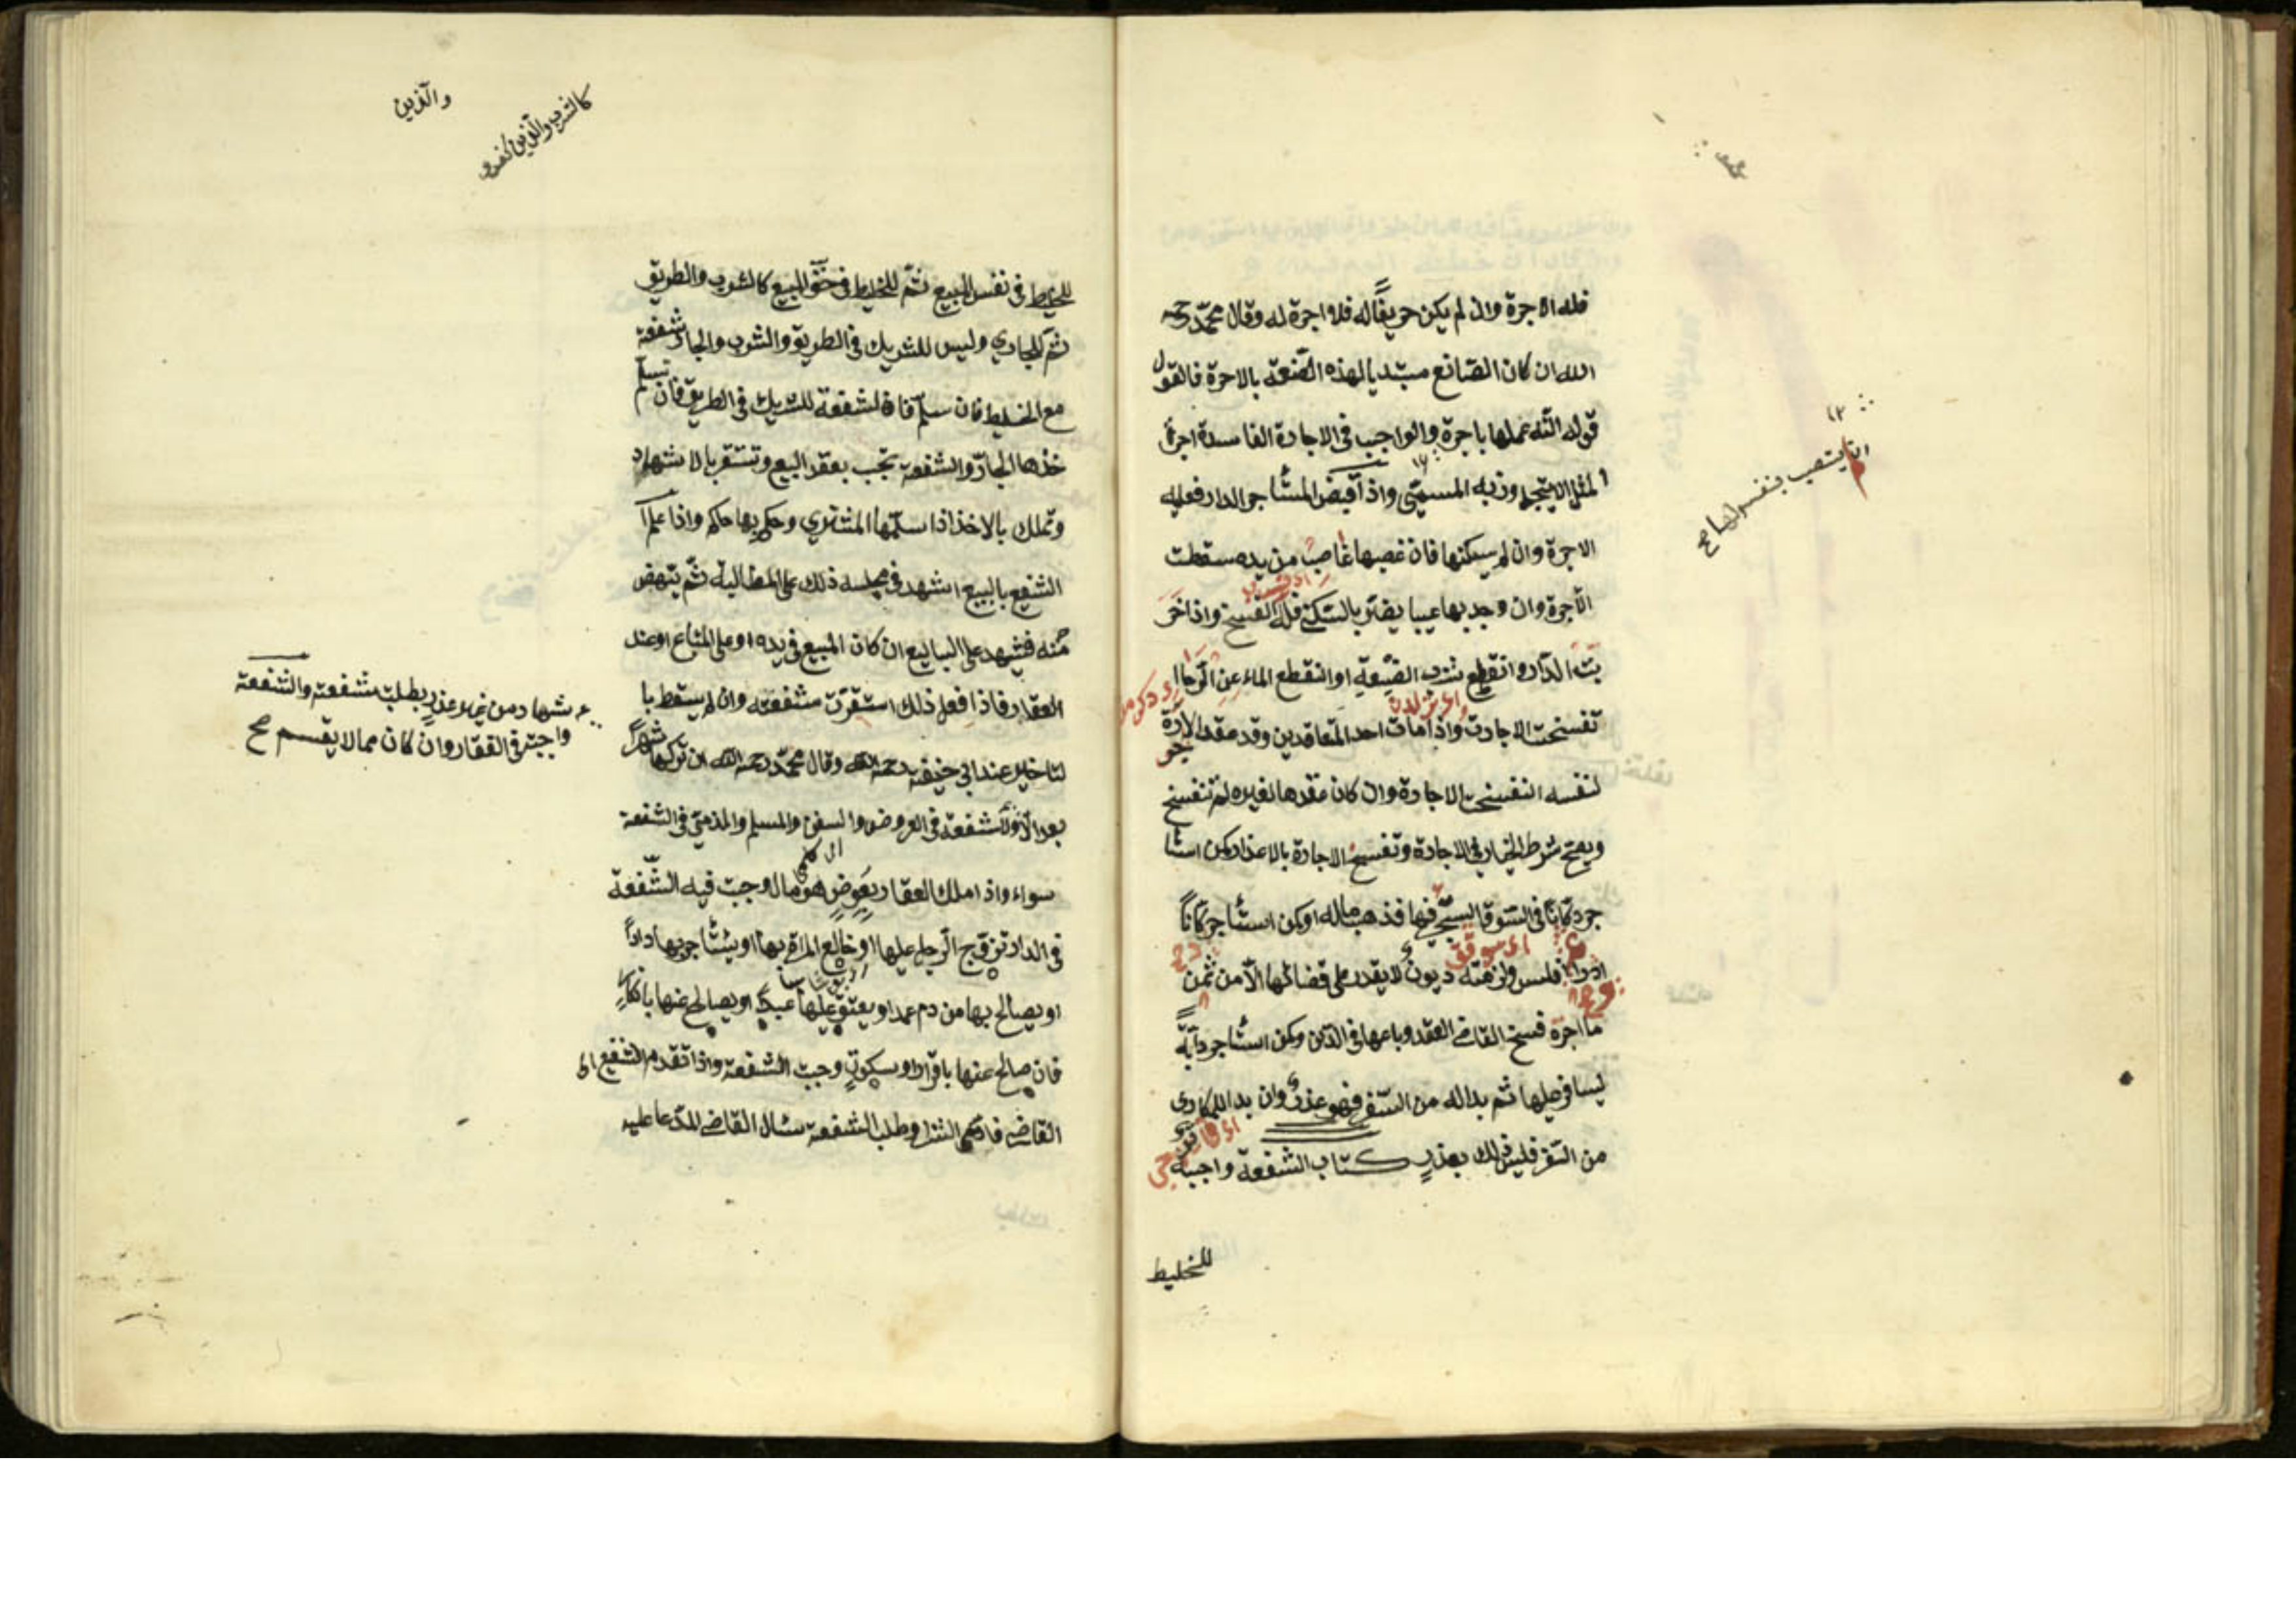 فله الاجرة وان لم يكن حريفًا له فلا اجرة له وقال محمّد رحمه
الله ان كان الصّانع مبتديا لهذه الصّنعة بالاجرة فالقول
قوله انّه عملها باجرة والواجب فى الاجارة الفاسدة اجرة
المثل لا يتجاوز به المسمّى واذا قبض المستأجر الدار فعليه
الاجرة وان لم يسكنها فان غصبها غاصب من يده سقطت
الاجرة وان وجد بها عيبا يضرّ بالسّكنى فله الفسخ واذا خر
بت الدّار وانقطع شرب الضّيعة او انقطع الماء عن الرّحا
تفسخت الاجارة واذا مات احد المتعاقدين وقد عقد الاجارة
لنفسه انفسخت الاجارة وان كان عقدها لغيره لم تنفسخ
ويصحّ شرط الخيار فى الاجارة وتفسخ الاجارة بالاعذار كمن استأ
جر دكّانًا فى السّوق ليتّجر فيها فذهب ماله او كمن استأجر دكّانًا
افلس ولزمته ديون لا يقدر على قضائها الّا من ثمن
ما اجره فسخ القاضى العقد وباعها فى الدّين وكمن استأجر دابّةً
ليسافر عليها ثم بدا له من السّفر فهو عذر وان بدا للمكارى
من السّفر فليس ذلك بعذر كتاب الشفعة واجبة
للخليط
ان يتصب بنفس لها صح
والّذين
كالشرب والّذين
للخليط فى نفس المبيع ثمّ للخليط فى حقّ المبيع كالشرب والطريق
ثمّ للجار وليس للشريك فى الطريق والشرب والجار شفعة
مع الخليط فان سلّم فالشفعة للشريك فى الطريق فان سلّم
خذها الجار والشفعة تجب بعقد البيع وتستقر بالاشهاد
وتملك بالاخذ اذا سلّمها المشترى وحكم بها حاكم واذا علم
الشفيع بالبيع اشهد فى مجلسه ذلك على المطالبة ثمّ ينهض
منه فيشهد على البايع ان كان المبيع فى يده او على المبتاع او عند
العقار فاذا فعل ذلك استقرّت شفعته وان لم يسقط با
لتاخير عند ابى حنيفة رحمه الله وقال محمّد رحمه الله ان تركها شهرًا
بعد الاشهاد من غير عذر بطلت شفعته والشفعة
واجبة فى العقار وان كان مما لا يقسم صح
ولا شفعة فى العروض والسفن والمسلم والذمّى فى الشفعة
سواء واذا ملك العقار بعوض هو مال وجبت فيه الشّفعة
فى الدار تزوّج الرّجل عليها او خالع المراة بها او يستأجر بها دارًا
او يصالح بها من دم عمد او يعتق عليها عبدًا او يصالح عنها بانكار
فان صالح عنها باقرار او سكوت وجبت الشفعة واذا تقدم الشفيع الى
القاضى فادّعى الشرا وطلب الشفعة سئال القاضى المدّعا عليه